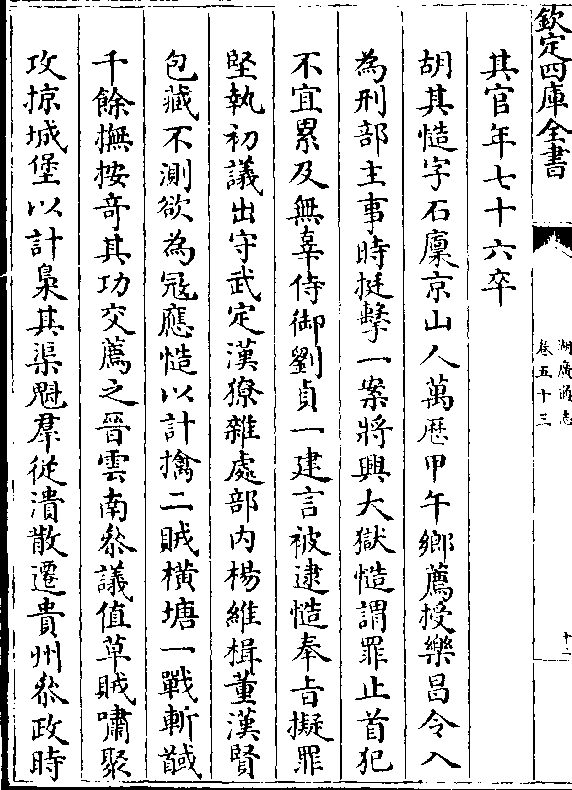 欽定四庫全書
湖廣通志
卷五十三
十二
其官年七十六卒
胡其慥字石廪京山人萬厯甲午鄉薦授樂昌令入
為刑部主事時挺擊一案將興大獄慥謂罪止首犯
不宜累及無辜侍御劉貞一建言被逮慥奉㫖擬罪
堅執初議出守武定漢獠雜處部内楊維楫董漢賢
包藏不測欲為冦應慥以計擒二賊横塘一戰斬馘
千餘撫按竒其功交薦之晉雲南叅議值草賊嘯聚
攻掠城堡以計梟其渠魁羣從潰散遷貴州叅政時